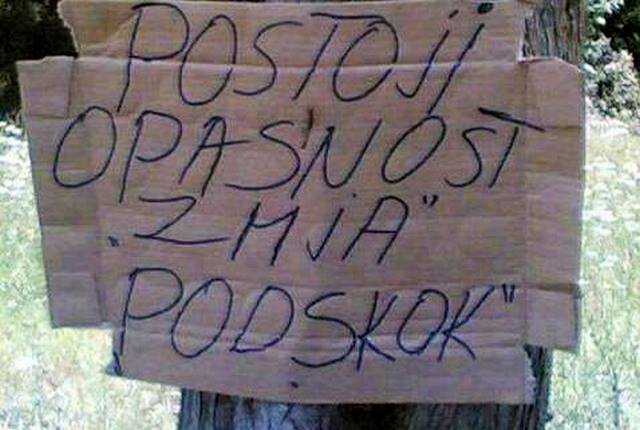 POSTOJi
OPASNOST
„ZMjA"
„PODSKOK"